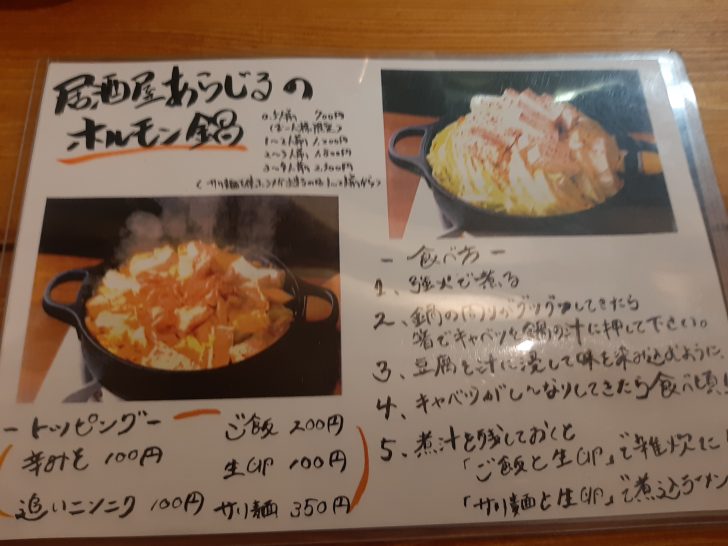 居酒屋あらじるの
ホルモン鍋
0.5人前 700円
(お一人様限定)
1〜2人前 1,200円
2〜3人前 1,800円
3〜4人前 2,300円
ー食べ方ー
1、強火で煮る
2、鍋の周りがグツグツしてきたら
箸でキャベツを鍋の汁に押して下さい。
3、豆腐を汁に浸して味を染み込むように
4、キャベツがしんなりしてきたら食べ頃
5、煮汁を残しておくと
「ご飯と生卵」で雑炊に
「サリ麺と生卵」で煮込ラーメン
ートッピングー
辛叶そ 100円
追いニンニク 100円
ご飯 200円
生卵 100円
サリ麺 350円